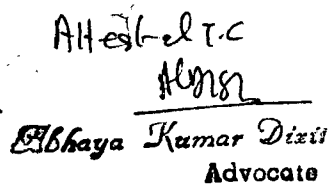 Attested T.C
Abhaya Kumar Dixit
Advocate